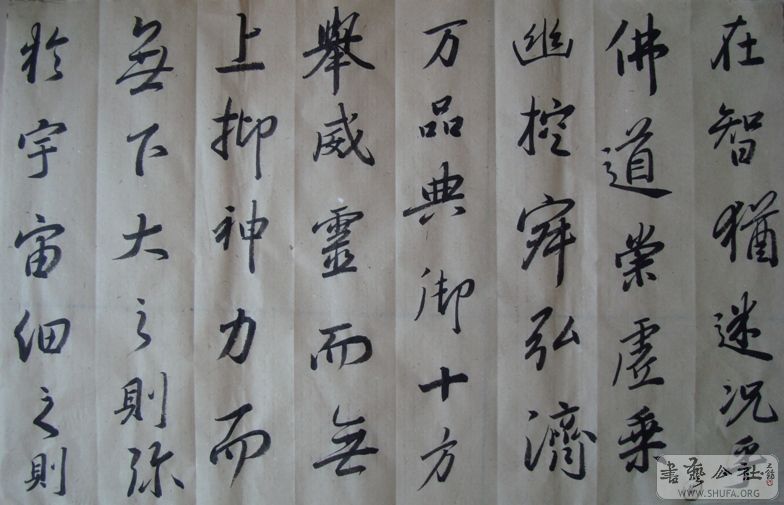 在智猶迷况乎
佛道崇虛乘
幽控寂弘濟
万品典御十方
舉威靈而無
上抑神力而
無下大之則弥
於宇宙細之則
書藝公社
WWW.SHUFA.ORG